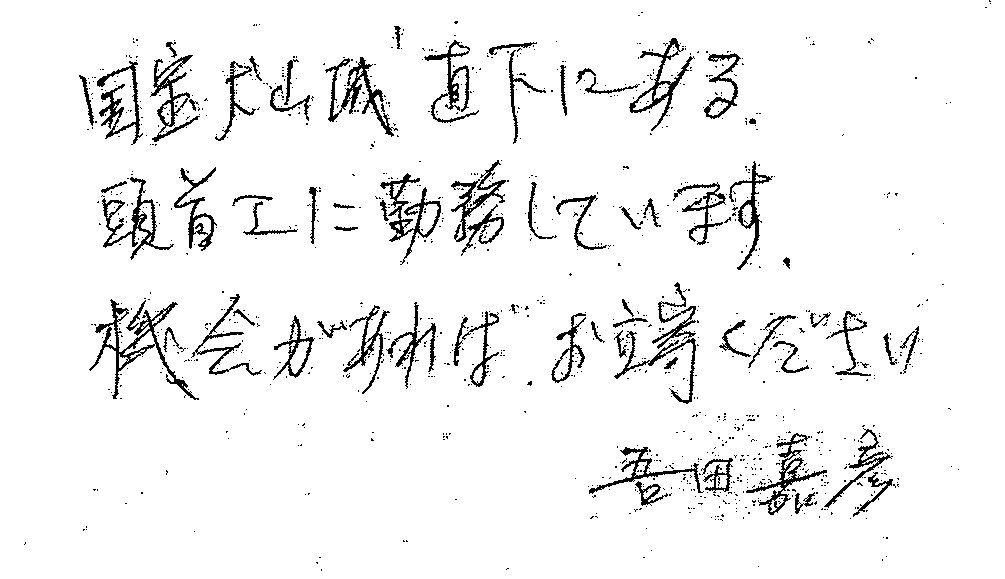 国宝犬山城直下にある.
頭首工に勤務しています.
機会があれば.お立寄ください
吾田嘉彦